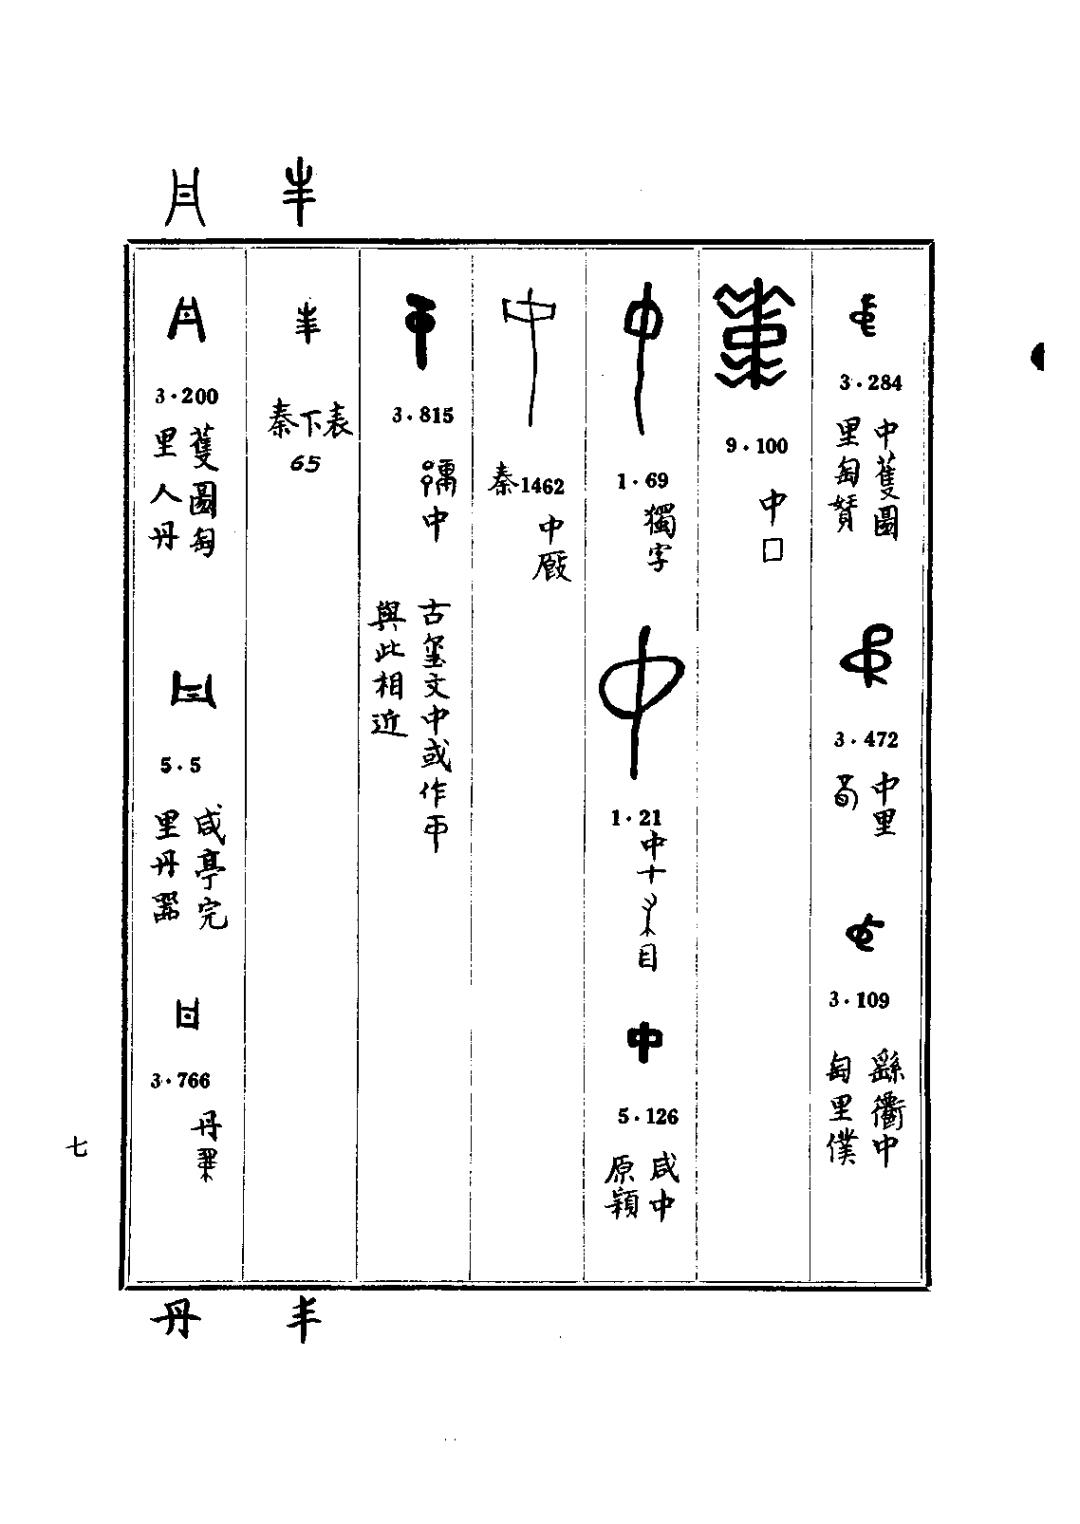 3·284
中蒦圖
里匋
3·472
中里
3·109
衟中
匋里僕
9·100
中□
1·69
獨字
1·21
中十
目
5·126
咸中
原穎
秦1462
中廄
3·815
中
古璽文中或作
與此相近
秦下表
65
丰
3·200
蒦圖匋
里人丹
5·5
咸亭完
里丹器
3·766
丹
丹
七